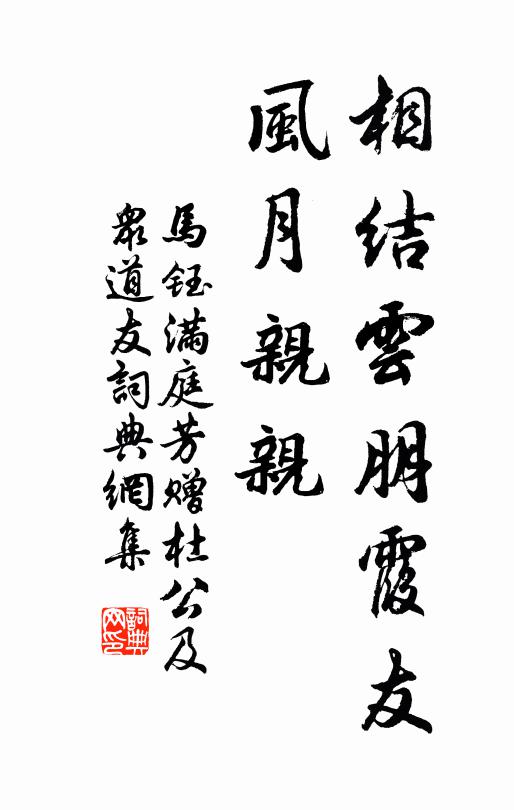 相結雲朋霞友
風月親親
馬鈺滿庭芳贈杜公及
眾道友詞典網集
詞典網印